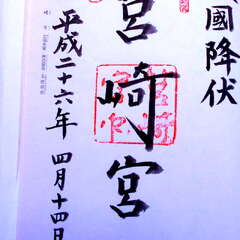 國降伏
宮崎宮
平成二十六年 四月十四日